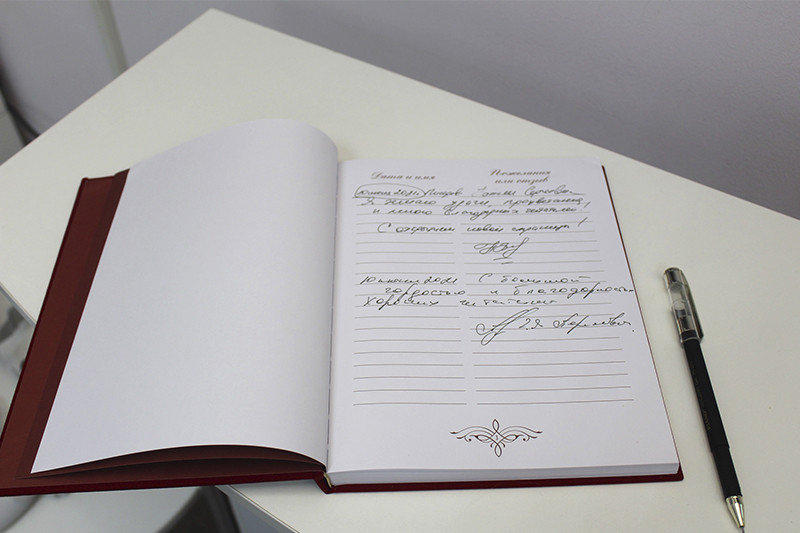 Дата и имя
Пожелания
или отзыв
10 июня 2021г.
Я желаю удачи, процветания
и много благодарных читателей!
С открытием новой страницы!
10 июня 2021 С большой
гордостью и благодарностью
хороших читателей